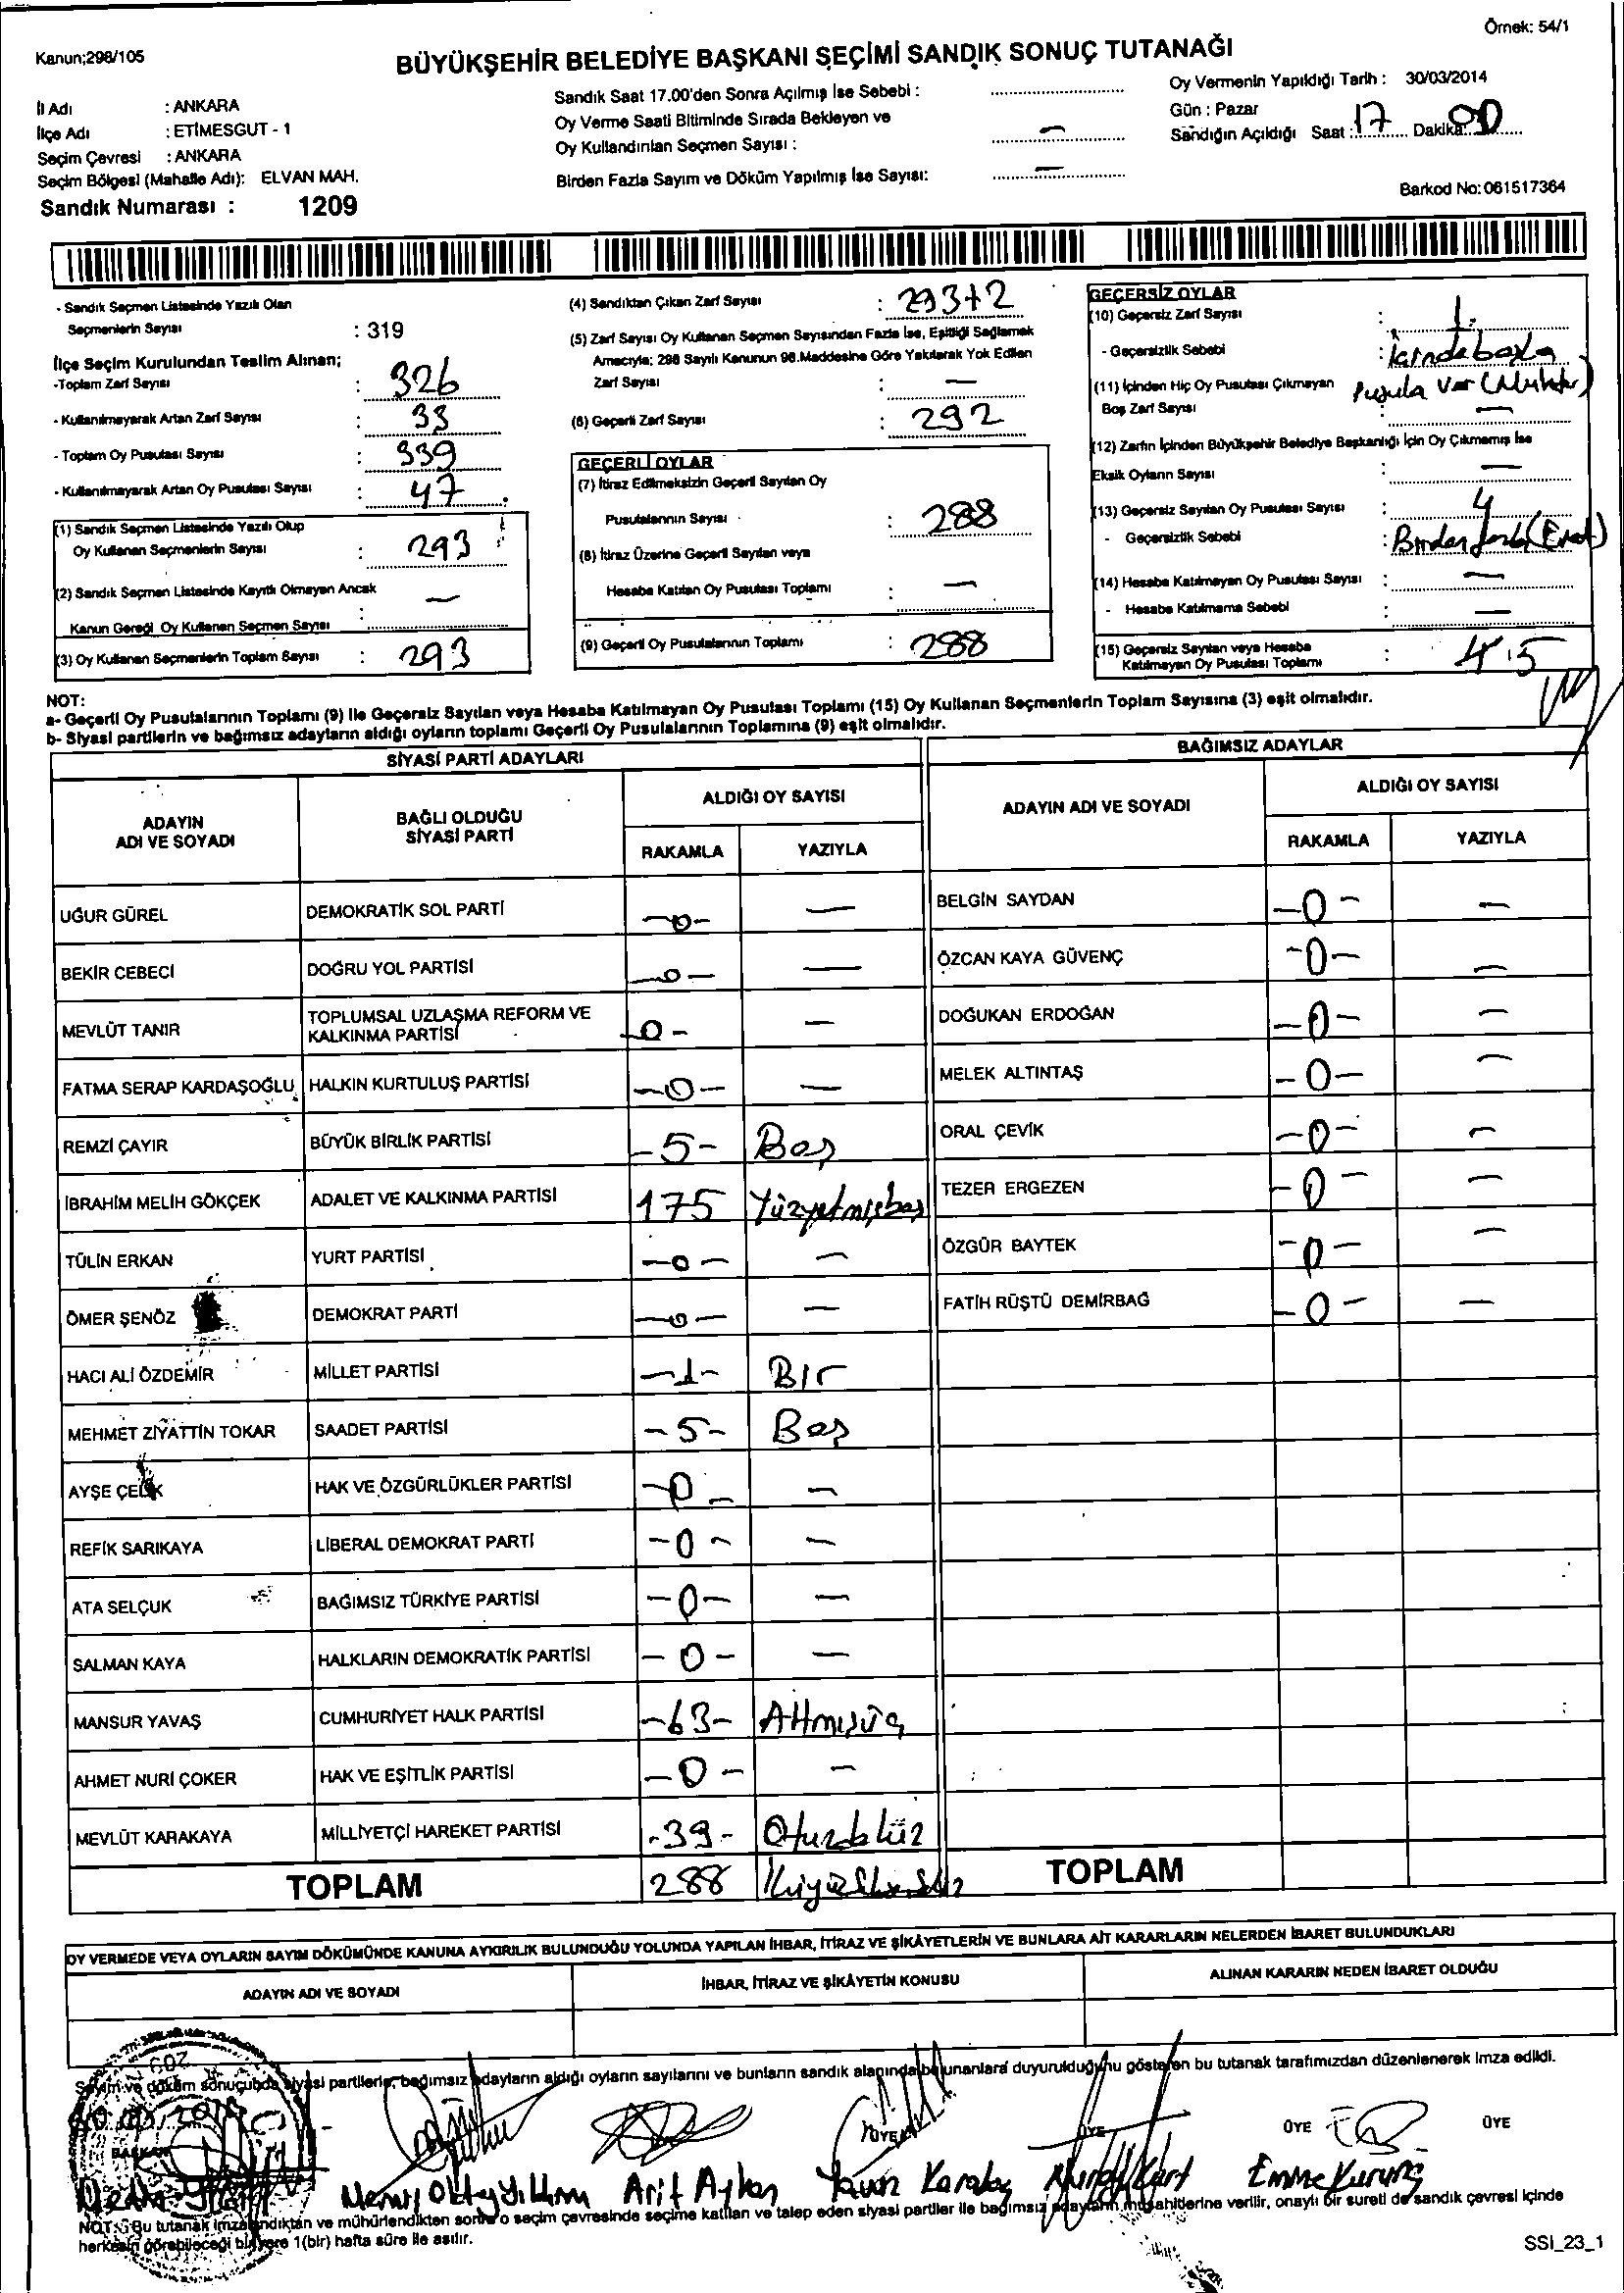 Örnek: 54/1
Kanun;298/105
BÜYÜKŞEHİR BELEDİYE BAŞKANI SEÇİMİ SANDIK SONUÇ TUTANAĞI
İl Adı : ANKARA
İlçe Adı : ETİMESGUT - 1
Seçim Çevresi : ANKARA
Seçim Bölgesi (Mahalle Adı): ELVAN MAH.
Sandık Numarası : 1209
Sandık Saat 17.00'den Sonra Açılmış İse Sebebi :
Oy Verme Saati Bitiminde Sırada Bekleyen ve
Oy Kullandırılan Seçmen Sayısı : –
Birden Fazla Sayım ve Döküm Yapılmış İse Sayısı: –
Oy Vermenin Yapıldığı Tarih : 30/03/2014
Gün : Pazar
Sandığın Açıldığı Saat : 17 Dakika: 00
Barkod No: 061517364
- Sandık Seçmen Listesinde Yazılı Olan
Seçmenlerin Sayısı : 319
İlçe Seçim Kurulundan Teslim Alınan;
-Toplam Zarf Sayısı : 326
- Kullanılmayarak Artan Zarf Sayısı : 33
- Toplam Oy Pusulası Sayısı : 339
- Kullanılmayarak Artan Oy Pusulası Sayısı : 47
(1) Sandık Seçmen Listesinde Yazılı Olup
Oy Kullanan Seçmenlerin Sayısı : 293
(2) Sandık Seçmen Listesinde Kayıtlı Olmayan Ancak
Kanun Gereği Oy Kullanan Seçmen Sayısı : –
(3) Oy Kullanan Seçmenlerin Toplam Sayısı : 293
(4) Sandıktan Çıkan Zarf Sayısı :
(5) Zarf Sayısı Oy Kullanan Seçmen Sayısından Fazla İse, Eşitliği Sağlamak
Amacıyla; 298 Sayılı Kanunun 98.Maddesine Göre Yakılarak Yok Edilen
Zarf Sayısı : –
(6) Geçerli Zarf Sayısı : 292
GEÇERLİ OYLAR
(7) İtiraz Edilmeksizin Geçerli Sayılan Oy
Pusulalarının Sayısı : 288
(8) İtiraz Üzerine Geçerli Sayılan veya
Hesaba Katılan Oy Pusulası Toplamı : –
(9) Geçerli Oy Pusulalarının Toplamı : 288
GEÇERSİZ OYLAR
(10) Geçersiz Zarf Sayısı : 1.
- Geçersizlik Sebebi : İçinde başka
Pusula Var (Muhtar)
(11) İçinden Hiç Oy Pusulası Çıkmayan
Boş Zarf Sayısı : –
(12) Zarfın İçinden Büyükşehir Belediye Başkanlığı İçin Oy Çıkmamış İse
Eksik Oyların Sayısı : –
(13) Geçersiz Sayılan Oy Pusulası Sayısı : 4
- Geçersizlik Sebebi : Birden fazla (Evet)
(14) Hesaba Katılmayan Oy Pusulası Sayısı : –
- Hesaba Katılmama Sebebi : –
(15) Geçersiz Sayılan veya Hesaba
Katılmayan Oy Pusulası Toplamı : 4.5
NOT:
a- Geçerli Oy Pusulalarının Toplamı (9) ile Geçersiz Sayılan veya Hesaba Katılmayan Oy Pusulası Toplamı (15) Oy Kullanan Seçmenlerin Toplam Sayısına (3) eşit olmalıdır.
b- Siyasi partilerin ve bağımsız adayların aldığı oyların toplamı Geçerli Oy Pusulalarının Toplamına (9) eşit olmalıdır.
SİYASİ PARTİ ADAYLARI
ADAYIN ADI VE SOYADI
BAĞLI OLDUĞU SİYASİ PARTİ
ALDIĞI OY SAYISI
RAKAMLA YAZIYLA
UĞUR GÜREL DEMOKRATİK SOL PARTİ -0- –
BEKİR CEBECİ DOĞRU YOL PARTİSİ -0- –
MEVLÜT TANIR TOPLUMSAL UZLAŞMA REFORM VE KALKINMA PARTİSİ -0- –
FATMA SERAP KARDAŞOĞLU HALKIN KURTULUŞ PARTİSİ -0- –
REMZİ ÇAYIR BÜYÜK BİRLİK PARTİSİ -5- Beş
İBRAHİM MELİH GÖKÇEK ADALET VE KALKINMA PARTİSİ 175 Yüzyetmişbeş
TÜLİN ERKAN YURT PARTİSİ -0- –
ÖMER ŞENÖZ DEMOKRAT PARTİ -0- –
HACI ALİ ÖZDEMİR MİLLET PARTİSİ -1- Bir
MEHMET ZİYATTİN TOKAR SAADET PARTİSİ -5- Beş
AYŞE ÇELİK HAK VE ÖZGÜRLÜKLER PARTİSİ -0- –
REFİK SARIKAYA LİBERAL DEMOKRAT PARTİ -0- –
ATA SELÇUK BAĞIMSIZ TÜRKİYE PARTİSİ -0- –
SALMAN KAYA HALKLARIN DEMOKRATİK PARTİSİ -0- –
MANSUR YAVAŞ CUMHURİYET HALK PARTİSİ -63- Altmışüç
AHMET NURİ ÇOKER HAK VE EŞİTLİK PARTİSİ -0- –
MEVLÜT KARAKAYA MİLLİYETÇİ HAREKET PARTİSİ -39- Otuzdokuz
TOPLAM 288 İkiyüzseksensekiz
BAĞIMSIZ ADAYLAR
ADAYIN ADI VE SOYADI
ALDIĞI OY SAYISI
RAKAMLA YAZIYLA
BELGİN SAYDAN -0- –
ÖZCAN KAYA GÜVENÇ -0- –
DOĞUKAN ERDOĞAN -0- –
MELEK ALTINTAŞ -0- –
ORAL ÇEVİK -0- –
TEZER ERGEZEN -0- –
ÖZGÜR BAYTEK -0- –
FATİH RÜŞTÜ DEMİRBAĞ -0- –
TOPLAM
OY VERMEDE VEYA OYLARIN SAYIM DÖKÜMÜNDE KANUNA AYKIRILIK BULUNDUĞU YOLUNDA YAPILAN İHBAR, İTİRAZ VE ŞİKÂYETLERİN VE BUNLARA AİT KARARLARIN NELERDEN İBARET BULUNDUKLARI
ADAYIN ADI VE SOYADI
İHBAR, İTİRAZ VE ŞİKÂYETİN KONUSU
ALINAN KARARIN NEDEN İBARET OLDUĞU
Sayım ve döküm sonucunda siyasi partilerle, bağımsız adayların aldığı oyların sayılarını ve bunların sandık alanında bulunanlara duyurulduğunu gösteren bu tutanak tarafımızdan düzenlenerek imza edildi.
BAŞKAN ÜYE ÜYE ÜYE ÜYE
Arif Ayhan Yavuz Karabaş Nuray Kurt Emine Kurung
NOT: Bu tutanak imzalandıktan ve mühürlendikten sonra o seçim çevresinde seçime katılan ve talep eden siyasi partiler ile bağımsız adayların müşahitlerine verilir, onaylı bir sureti de sandık çevresi içinde
herkesin görebileceği bir yere 1(bir) hafta süre ile asılır.
SSI_23_1